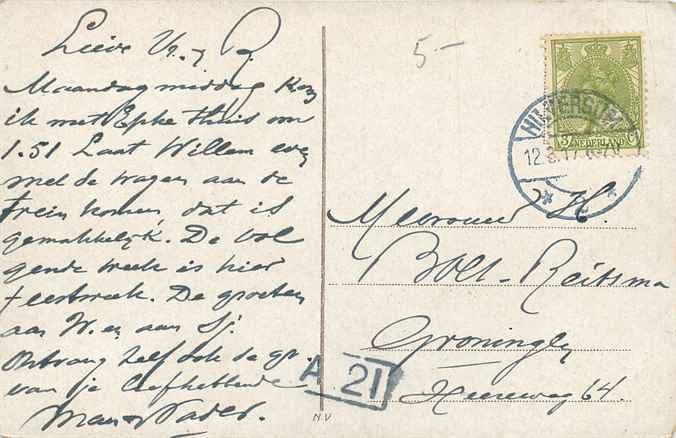 Lieve Vr. y P.
Maandag middag kom
ik met Epke thuis om
1.51 Laat Willem even
met de wagen aan de
trein komen, dat is
gemakkelijk. De vol
gende week is hier
feestweek. De groeten
aan W. en aan Sj.
Ontvang zelf ook de gr.
van je liefhebbende
Man & Vader.
5-
HILVERSUM
12. 17
3 NEDERLAND Ct
Mevrouw H.
Bolt-Reitsma
Groningen
Heereweg 64.
A 21
N.V